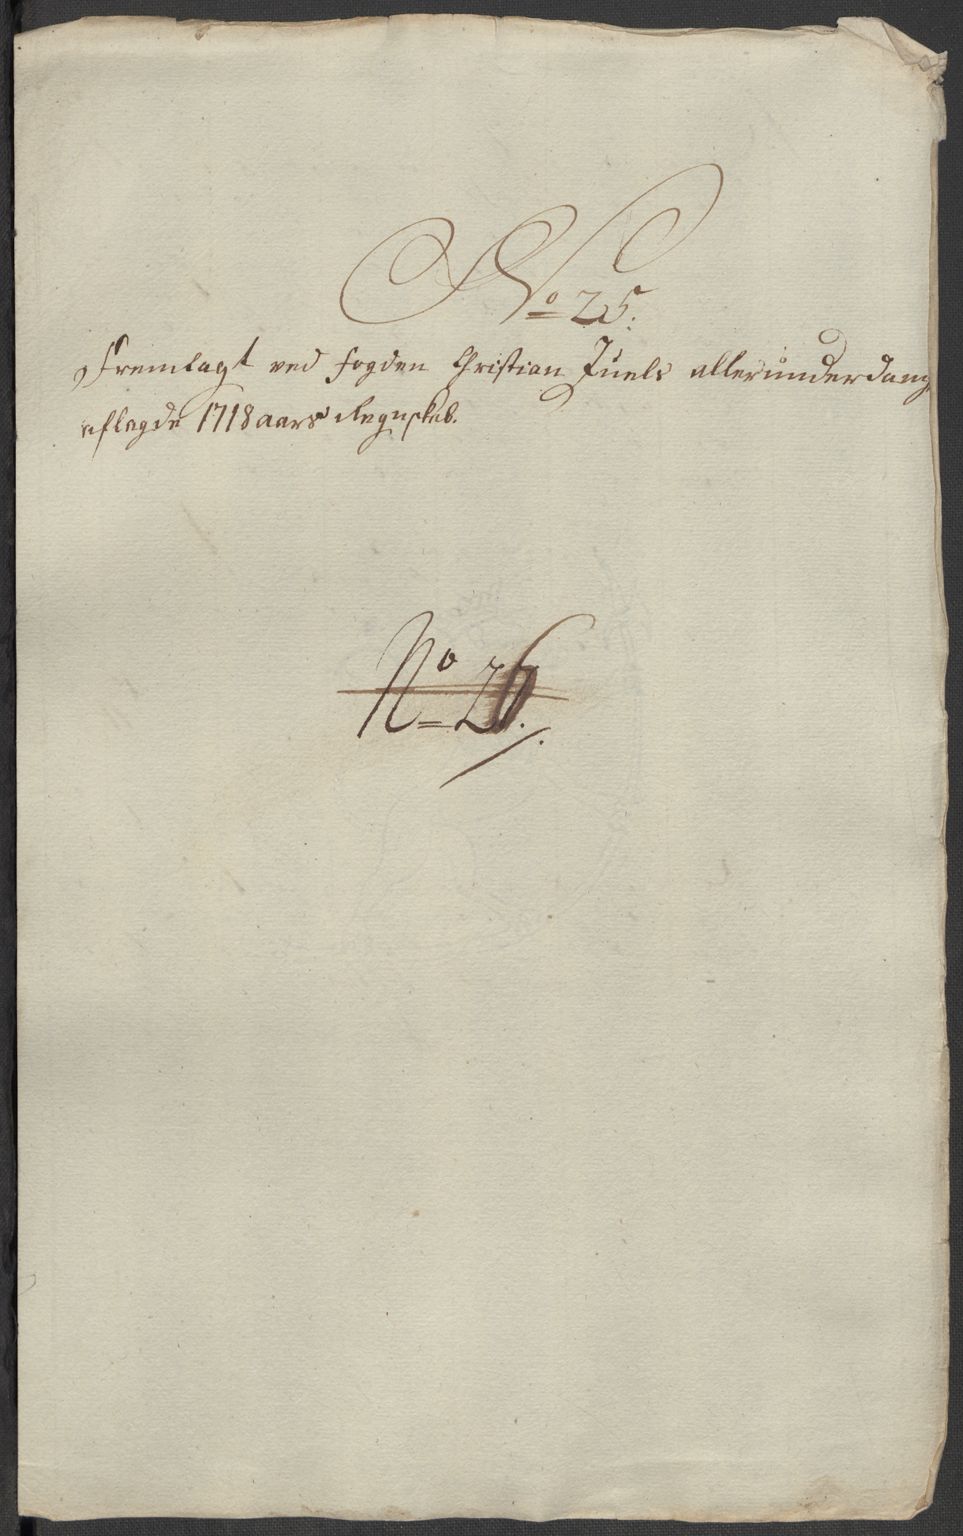 No 25:
Fremlagt ved fogden Christian Juels allerunderdanig
aflagde 1718 aars Regnskab.
No 26.